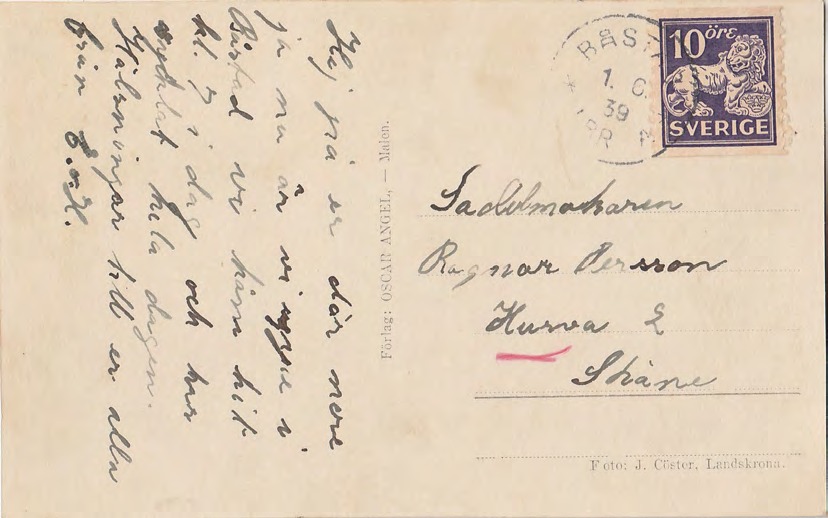 Hej på er där nere
ja nu är vi uppe i
Båstad vi kom hit
kl. 7 i dag och har
cyklat hela dagen.
Hälsningar till er alla
från E.o.H.
Förlag: OSCAR ANGEL, — Malen.
BÅST
1. 39
10 öre
SVERIGE
Sadelmakaren
Ragnar Persson
Hurva
Skåne
Foto: J. Cöster, Landskrona.